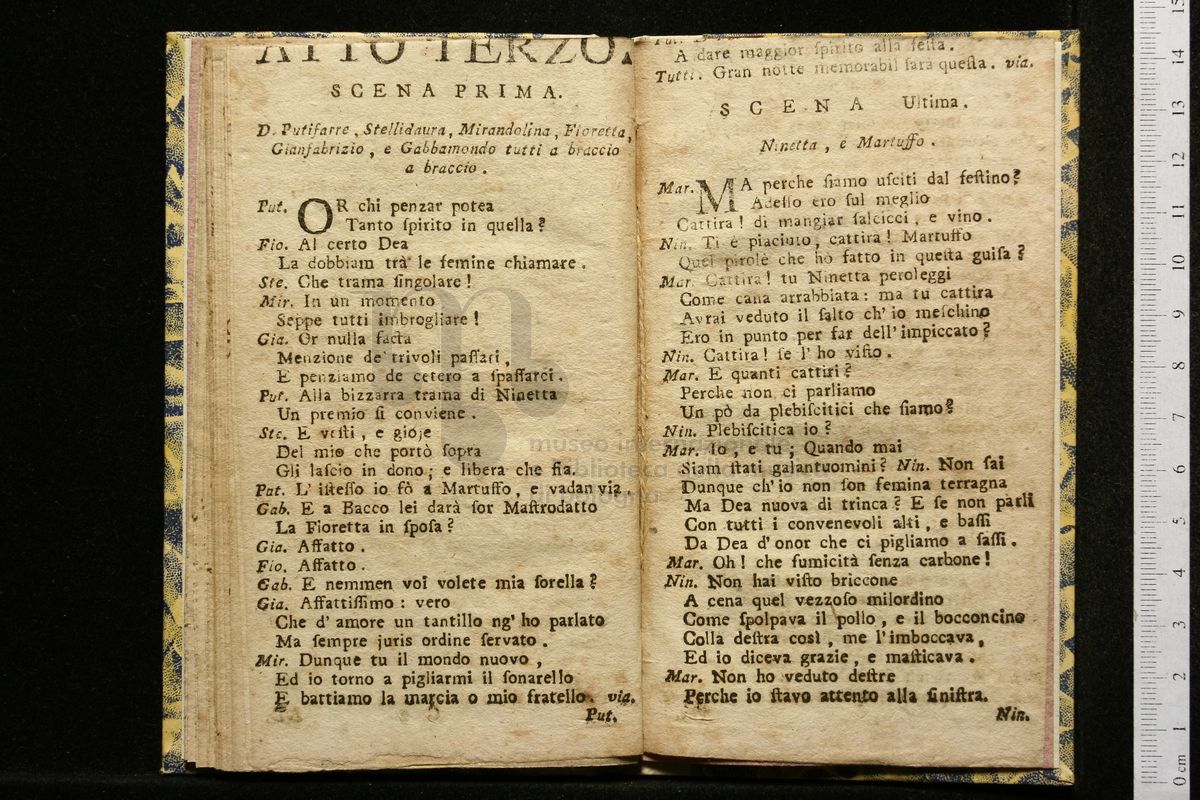 ATTO TERZO.
SCENA PRIMA.
D. Putifarre, Stellidaura, Mirandolina, Fioretta,
Gianfabrizio, e Gabbamondo tutti a braccio
a braccio.
Put. OR chi penzar potea
Tanto ſpirito in quella?
Fio. Al certo Dea
La dobbiam trà le femine chiamare.
Ste. Che trama ſingolare!
Mir. In un momento
Seppe tutti imbrogliare!
Gia. Or nulla facta
Menzione de' trivoli paſſati,
E penziamo de cetero a ſpaſſarci.
Put. Alla bizzarra trama di Ninetta
Un premio ſi conviene.
Ste. E veſti, e gioje
Del mio che portò ſopra
Gli laſcio in dono; e libera che ſia.
Put. L' iſteſſo io fò a Martuffo, e vadan via.
Gab. E a Bacco lei darà ſor Maſtrodatto
La Fioretta in ſpoſa?
Gia. Affatto.
Fio. Affatto.
Gab. E nemmen voi volete mia ſorella?
Gia. Affattiſſimo: vero
Che d' amore un tantillo ng' ho parlato
Ma ſempre juris ordine ſervato.
Mir. Dunque tu il mondo nuovo,
Ed io torno a pigliarmi il ſonarello
E battiamo la marcia o mio fratello. via.
Put.
A dare maggior ſpirito alla feſta.
Tutti. Gran notte memorabil ſarà queſta. via.
SCENA Ultima.
Ninetta, e Martuffo.
Mar. MA perche ſiamo uſciti dal feſtino?
Adeſſo ero ſul meglio
Cattira! di mangiar ſalcicci, e vino.
Nin. Ti è piaciuto, cattira! Martuffo
Quel pirolè che hò fatto in queſta guiſa?
Mar Cattira! tu Ninetta peroleggi
Come cana arrabbiata: ma tu cattira
Avrai veduto il ſalto ch' io meſchino
Ero in punto per far dell' impiccato?
Nin. Cattira! ſe l' ho viſto.
Mar. E quanti cattiri?
Perche non ci parliamo
Un pò da plebiſcitici che ſiamo?
Nin. Plebiſcitica io?
Mar. Io, e tu; Quando mai
Siam ſtati galantuomini? Nin. Non ſai
Dunque ch' io non ſon femina terragna
Ma Dea nuova di trinca? E ſe non parli
Con tutti i convenevoli alti, e baſſi
Da Dea d' onor che ci pigliamo a ſaſſi.
Mar. Oh! che fumicità ſenza carbone!
Nin. Non hai viſto briccone
A cena quel vezzoſo milordino
Come ſpolpava il pollo, e il bocconcino
Colla deſtra così, me l' imboccava,
Ed io diceva grazie, e maſticava.
Mar. Non ho veduto deſtre
Perche io ſtavo attento alla ſiniſtra.
Nin.